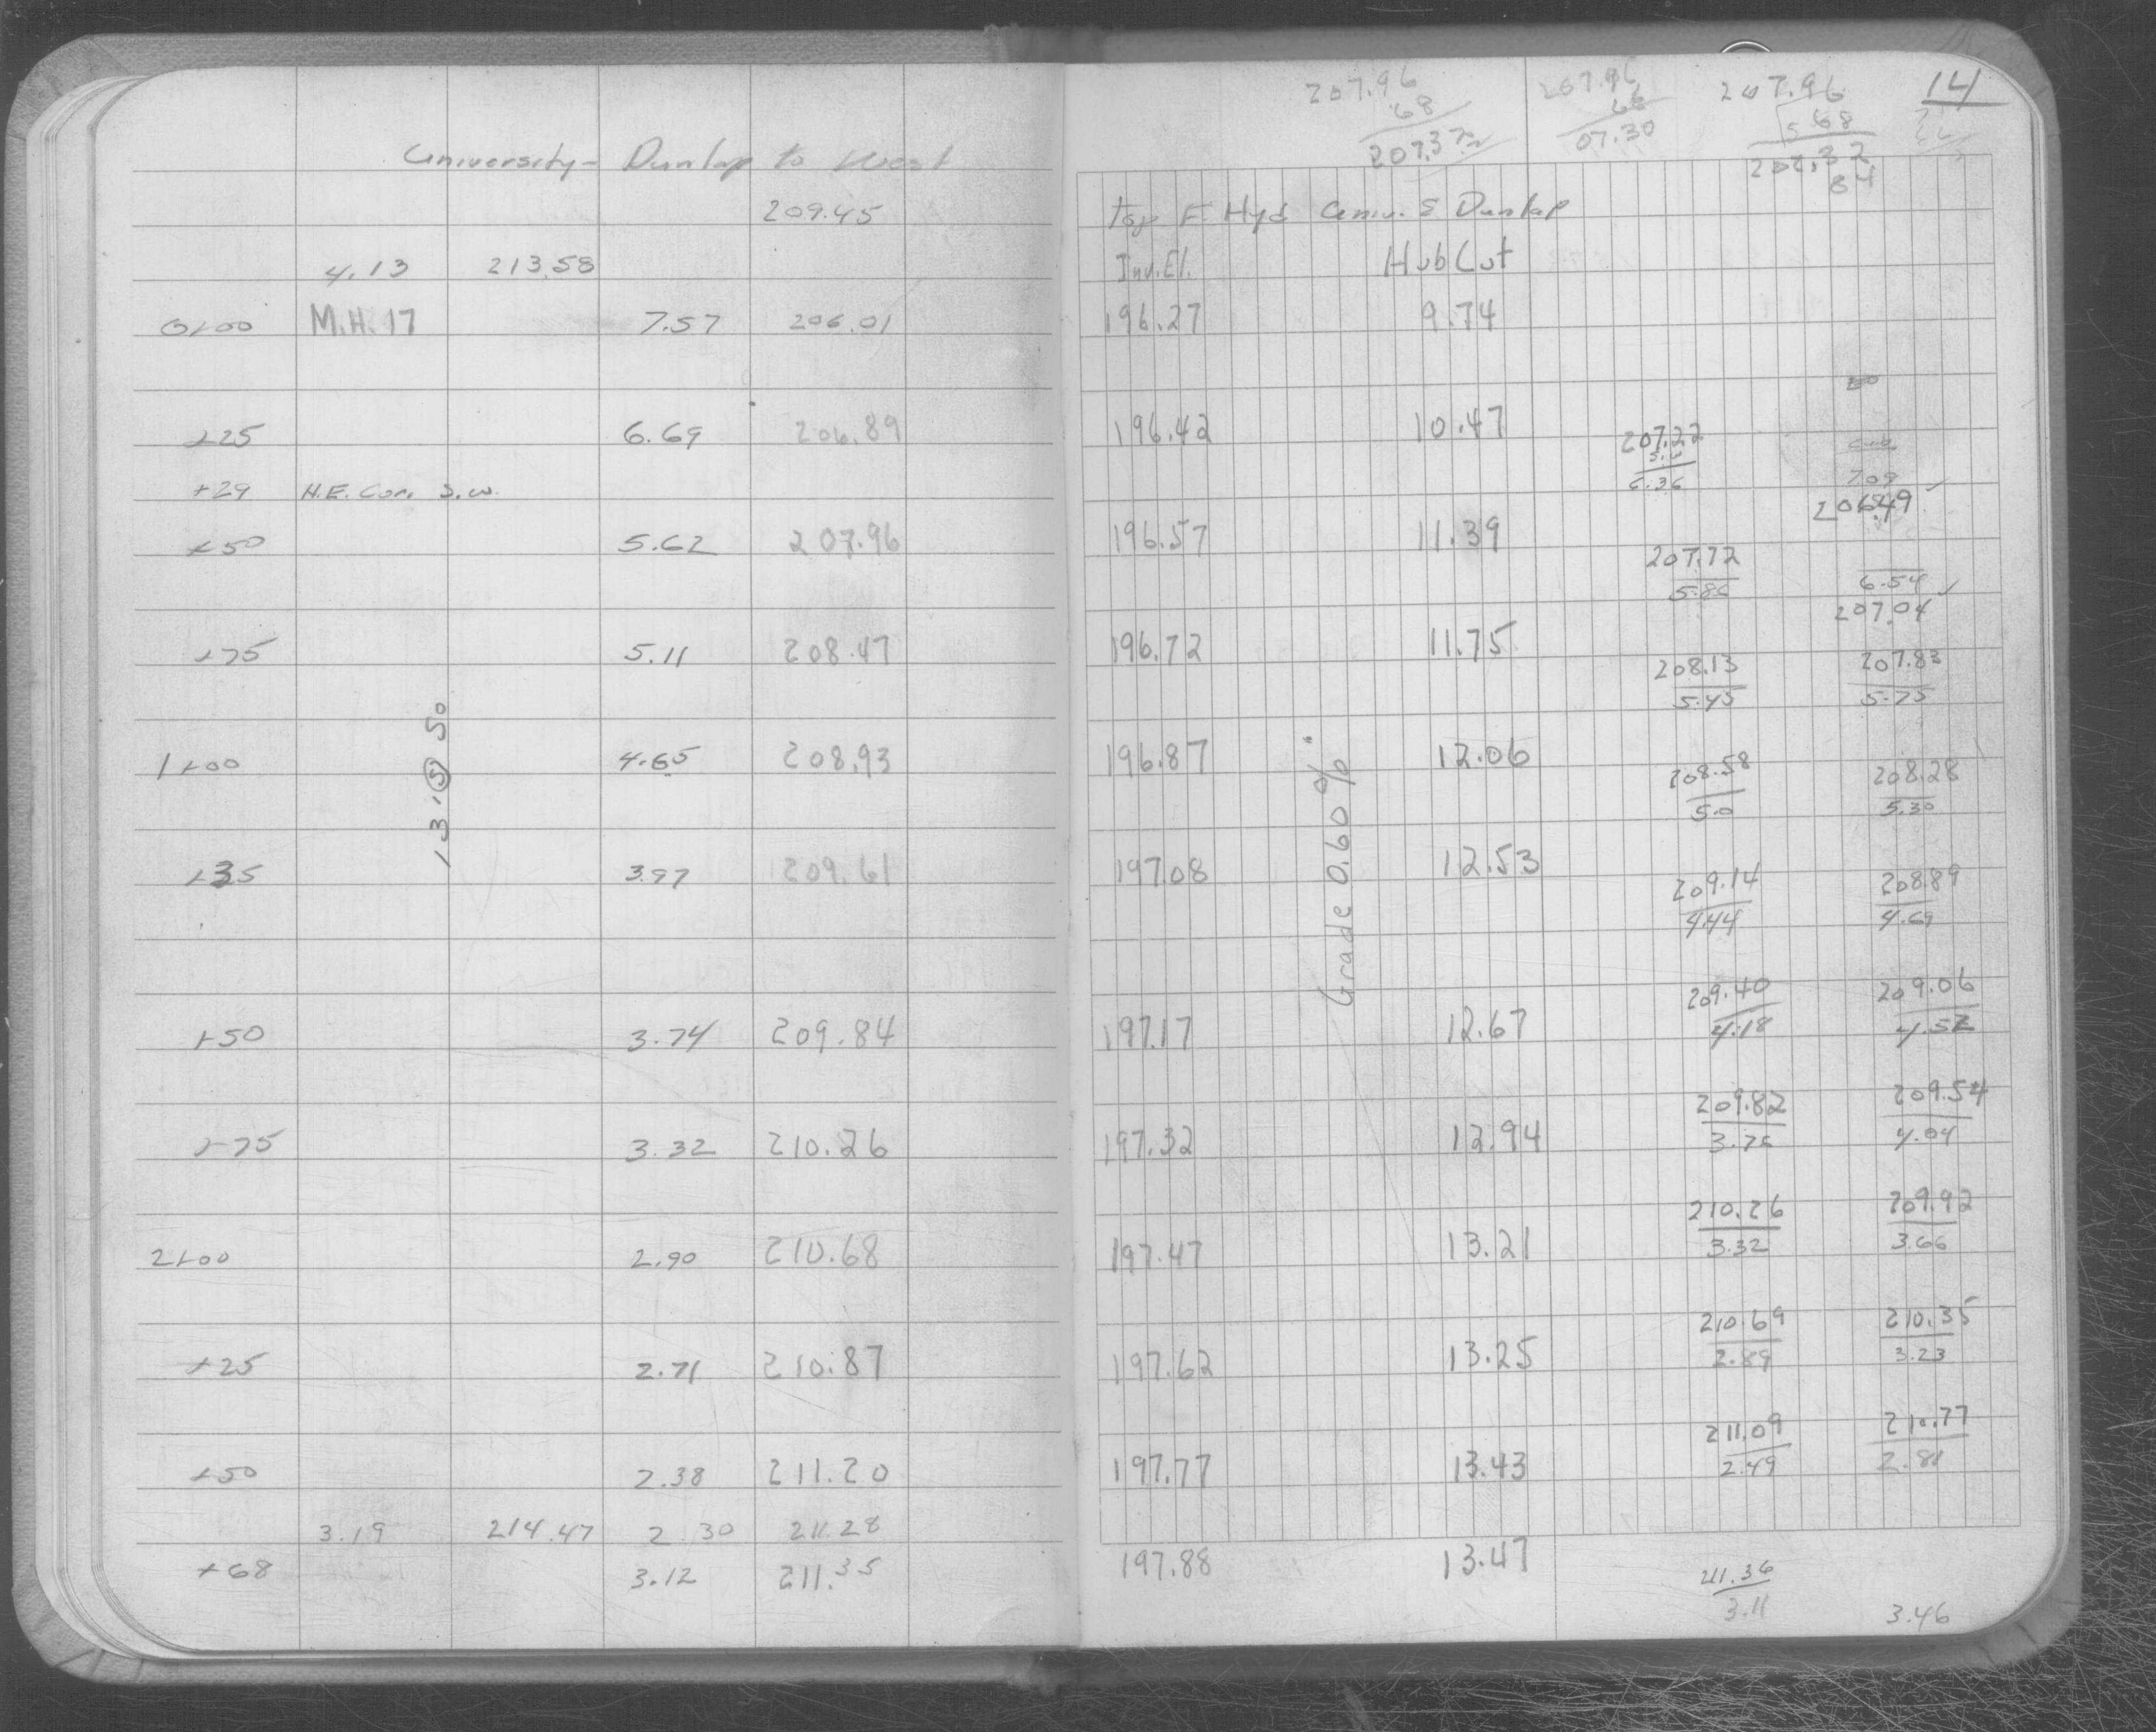 14
207.96 207.96 207.96
68 66 68
207.37 07.30 207.32
84
University - Dunlap to West
209.45 Top F. Hyd Univ. & Dunlap
4.13 213.58 Inv. El. Hub Cut
0+00 M.H. 17 7.57 206.01 196.27 9.74
+25 6.69 206.89 196.42 10.47 207.22
+29 N.E. Cor. S.W. 6.36 7.09
206.49
+50 5.62 207.96 196.57 11.39 207.72
5.86 6.54
207.04
+75 5.11 208.47 196.72 11.75 208.13 207.83
5.45 5.75
1+00 4.65 208.93 196.87 12.06 208.58 208.28
5.0 5.30
13.5 50
Grade 0.60%
+35 3.97 209.61 197.08 12.53 209.14 208.89
4.44 4.69
+50 3.74 209.84 197.17 12.67 209.40 209.06
4.18 4.52
+75 3.32 210.26 197.32 12.94 209.82 209.54
3.76 4.04
2+00 2.90 210.68 197.47 13.21 210.26 209.92
3.32 3.66
+25 2.71 210.87 197.62 13.25 210.69 210.35
2.89 3.23
+50 2.38 211.20 197.77 13.43 211.09 210.77
2.49 2.81
3.19 214.47 2.30 211.28
+68 3.12 211.35 197.88 13.47 211.36
3.11 3.46